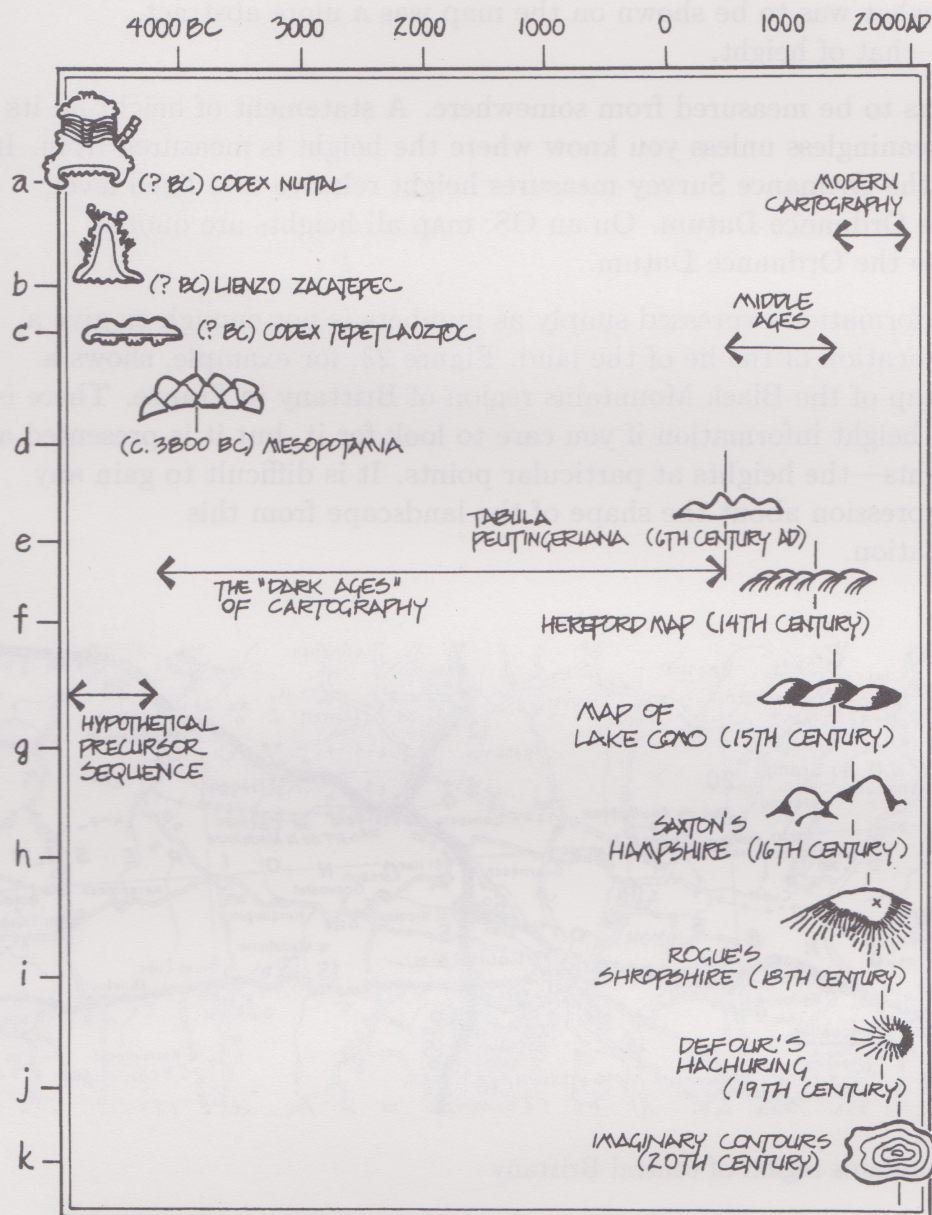 4000 BC 3000 2000 1000 0 1000 2000 AD
a (? BC) CODEX NUTTAL
MODERN
CARTOGRAPHY
b (? BC) LIENZO ZACATEPEC
c (? BC) CODEX TEPETLAOZTOC
MIDDLE
AGES
d (C. 3800 BC) MESOPOTAMIA
e TABULA
PEUTINGERIANA (6TH CENTURY AD)
THE "DARK AGES"
OF CARTOGRAPHY
f HEREFORD MAP (14TH CENTURY)
g HYPOTHETICAL
PRECURSOR
SEQUENCE
MAP OF
LAKE COMO (15TH CENTURY)
h SAXTON'S
HAMPSHIRE (16TH CENTURY)
i ROGUE'S
SHROPSHIRE (18TH CENTURY)
j DEFOUR'S
HACHURING
(19TH CENTURY)
k IMAGINARY CONTOURS
(20TH CENTURY)